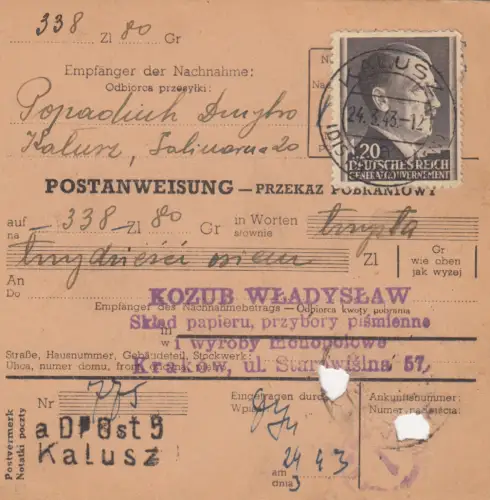 338 Zl 80 Gr
Empfänger der Nachnahme:
Odbiorca przesyłki:
Popadiuk Dmytro
Kalusz, Salinarna 20
KALUSZ
24.3.43.-12
1.20
DEUTSCHES REICH
GENERALGOUVERNEMENT
POSTANWEISUNG — PRZEKAZ POBRANIOWY
auf
na
-338- Zl 80 Gr
in Worten
słownie
trzysta
trzydzieści osiem
Zl
Gr
wie oben
jak wyżej
An
Do
KOZUB WŁADYSŁAW
Empfänger des Nachnahmebetrags — Odbiorca kwoty pobrania
Skład papieru, przybory piśmienne
in
w
i wyroby monopolowe
Straße, Hausnummer, Gebäudeteil, Stockwerk:
Ulica, numer domu,
Kraków, ul. Starowiślna 57,
Postvermerk
Notatki poczty
Nr 775
Eingetragen durch
Ankunftsnummer:
Numer nadejścia:
a DPOst 9
Kalusz
am
dnia
24 3 43